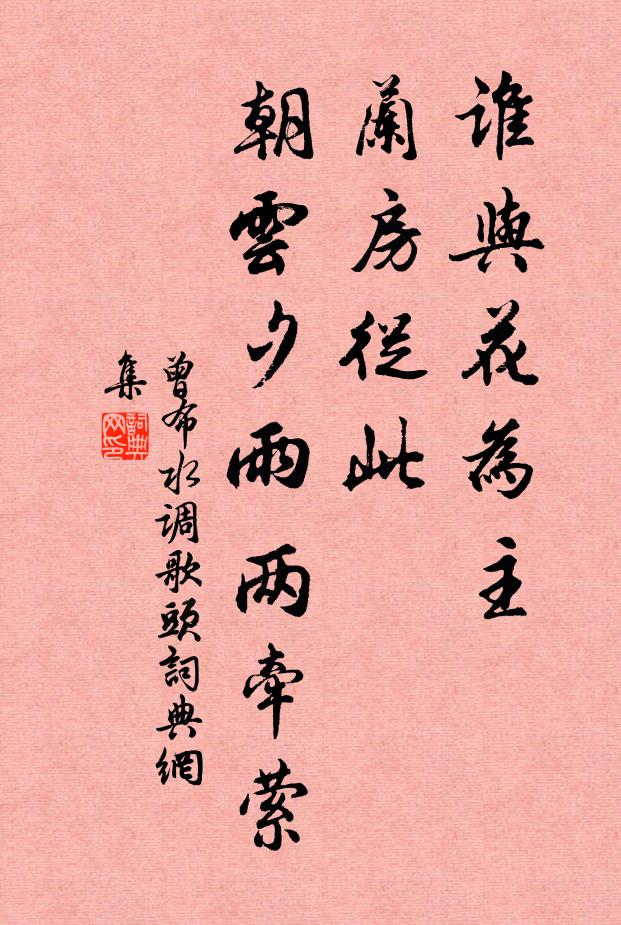 誰與花為主
蘭房從此
朝雲夕雨两牽縈
曾布水调歌頭詞典網
集
詞典
网印